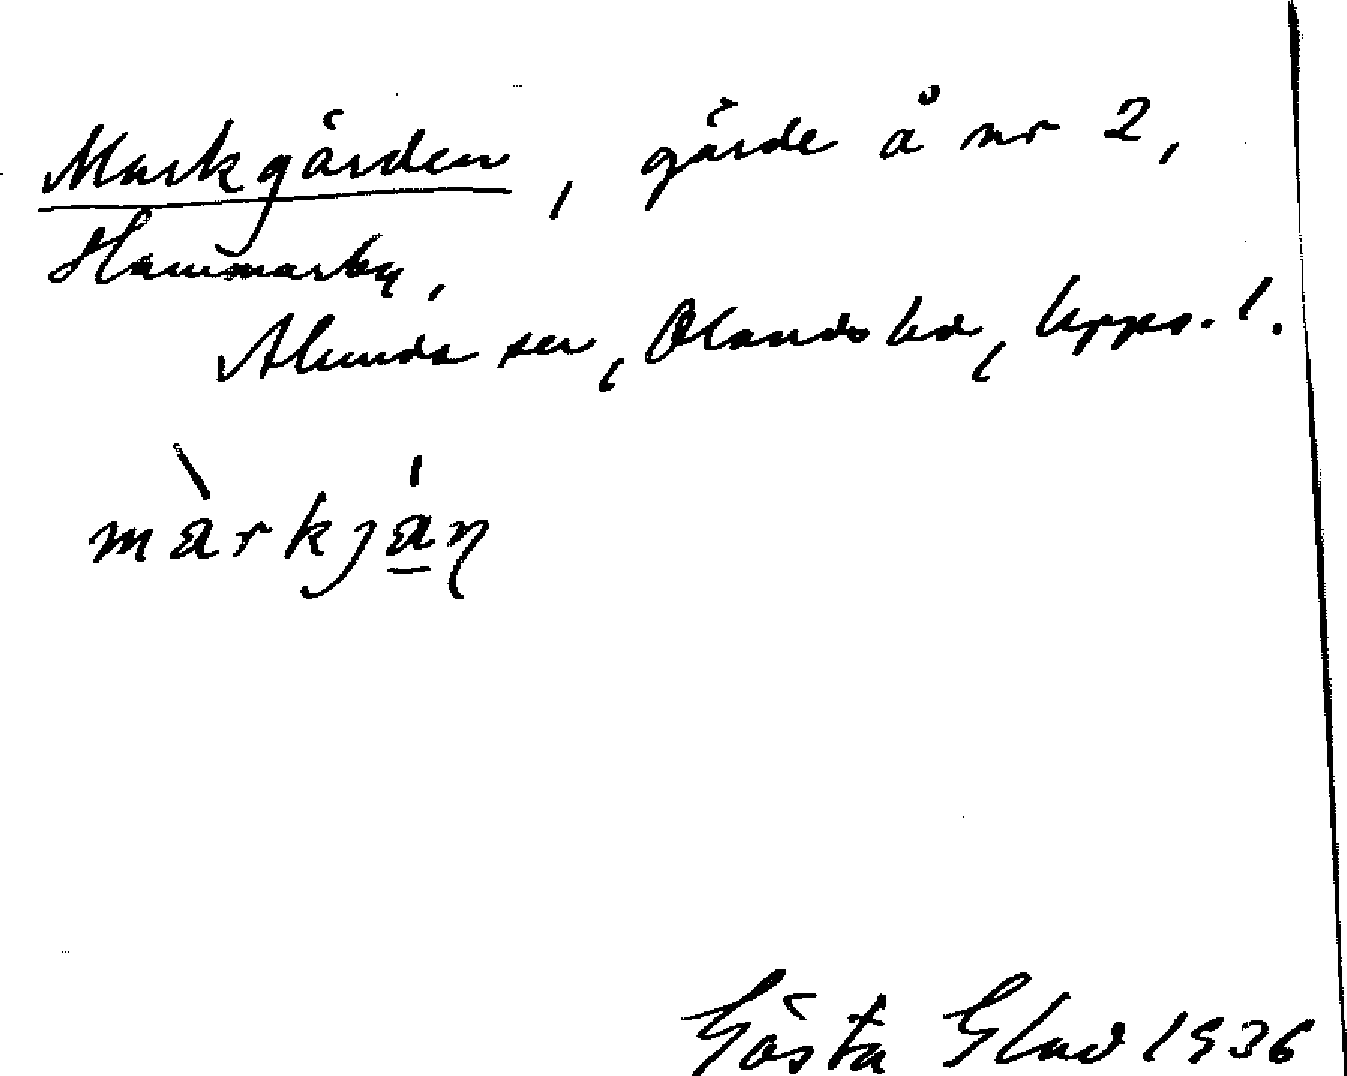 Markgärden, gärde å nr 2,
Hammarby,
Alunda sn, Olands hd, Upps. l.
màrkjá̱ṇ
Gösta Glad 1936